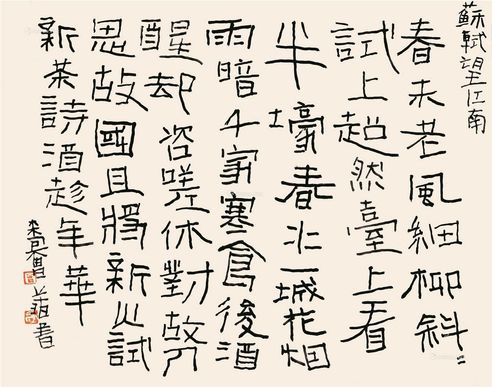 蘇軾望江南
春未老風細柳斜〻
試上超然臺上看
半壕春水一城花烟
雨暗千家寒食後酒
醒却咨嗟休對故人
思故國且將新火試
新茶詩酒趁年華
書